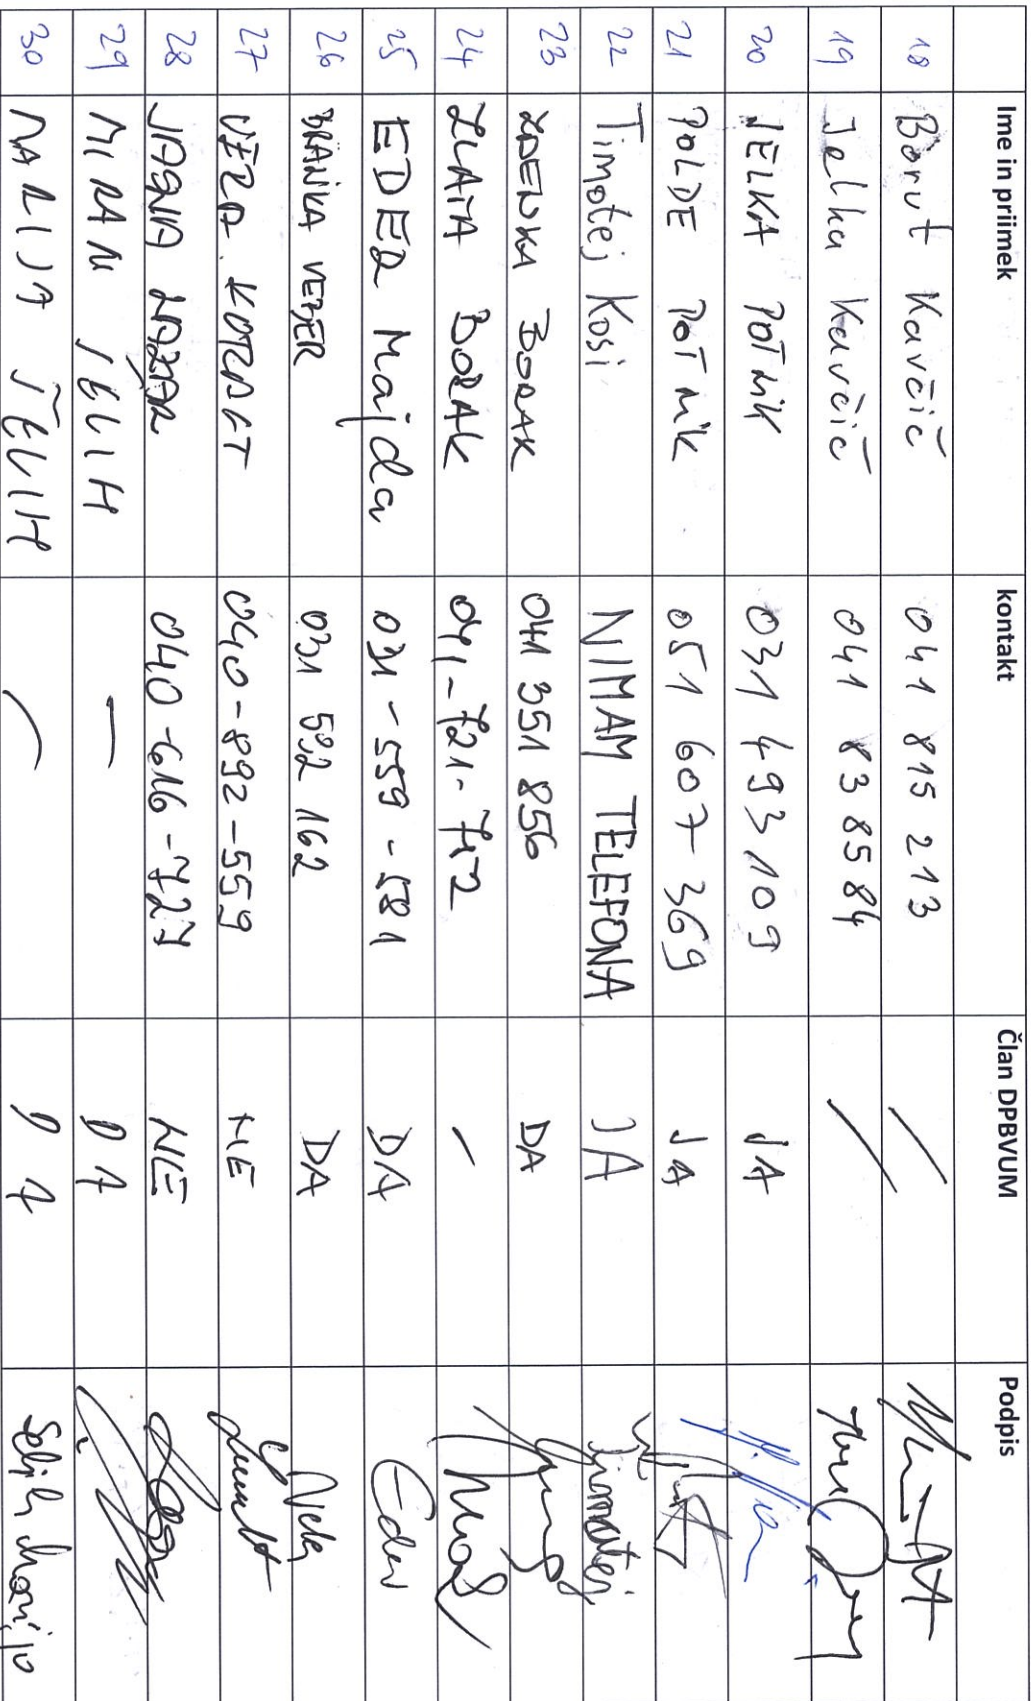 Ime in priimek kontakt Član DPBVUM Podpis
18 Borut Kavčič 041 815 213 /
19 Jelka Kavčič 041 83 85 84 /
20 JELKA POTNIK 031 493 109 JA
21 POLDE POTNIK 051 607 369 JA
22 Timotej Kosi NIMAM TELEFONA JA Timotej
23 ZDENKA BORAK 041 351 856 DA
24 ZLATA BORAK 041-721-712 -
25 EDER Majda 031-559-581 DA Eder
26 BRANKA VEBER 031 592 162 DA
27 VERA 040-892-559 NE
28 040-616-727 NE
29 MIRAN ŠELIH — DA
30 MARIJA ŠELIH — DA Šelih Marija